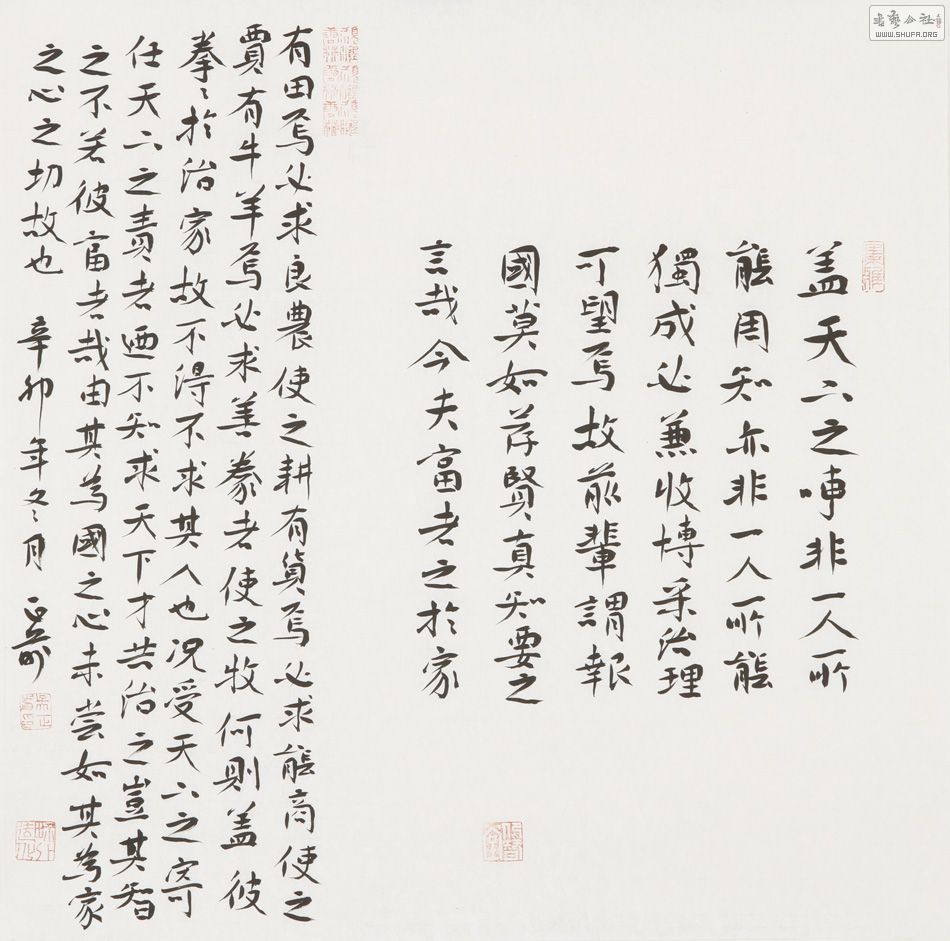 書藝公社
WWW.SHUFA.ORG
盖天下之事非一人所
能周知亦非一人所能
獨成必兼收博采治理
可望焉故前輩謂報
國莫如荐賢真知要之
言哉今夫富者之於家
有田焉必求良農使之耕有貨焉必求能商使之
賈有牛羊焉必求善豢者使之牧何則盖彼
拳〻於治家故不得不求其人也况受天下之寄
任天下之責者迺不知求天下才共治之豈其智
之不若彼富者哉由其為國之心未嘗如其為家
之心之切故也 辛卯年冬月